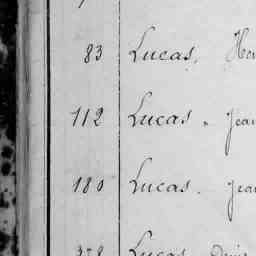 83 Lucas,
112 Lucas. Jean
180 Lucas. Jean
Lucas